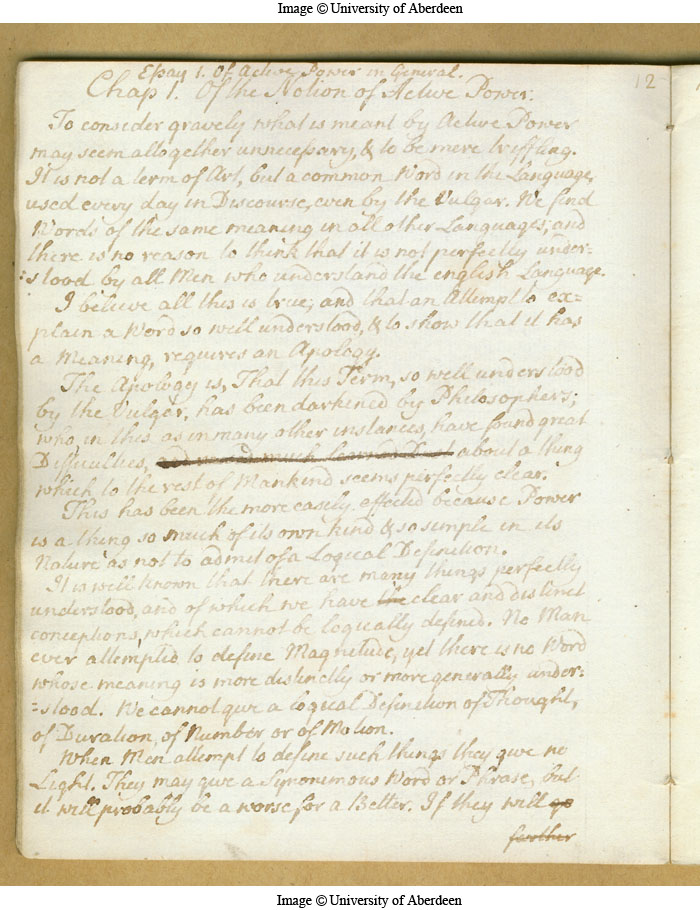 Image © University of Aberdeen
12
Essay 1. Of Active Power in General.
Chap 1. Of the Notion of Active Power.
To consider gravely what is meant by Active Power
may seem altogether unnecessary, & to be mere triffling.
It is not a term of Art, but a common Word in the Language,
used every day in Discourse, even by the Vulgar. We find
Words of the same meaning in all other Languages; and
there is no reason to think that it is not perfectly under=
=stood by all Men who understand the english Language.
I believe all this is true; and that an Attempt to ex=
plain a Word so well understood, & to show that it has
a Meaning, requires an Apology.
The Apology is, That this Term, so well understood
by the Vulgar, has been darkened by Philosophers;
who in this as in many other instances, have found great
Difficulties, about a thing
which to the rest of Mankind seems perfectly clear.
This has been the more easily effected because Power
is a thing so much of its own kind & so simple in its
Nature as not to admit of a Logical Definition.
It is well known that there are many things perfectly
understood, and of which we have the clear and distinct
conceptions, which cannot be logically defined. No Man
ever attempted to define Magnitude, yet there is no Word
whose meaning is more distinctly or more generally under=
=stood. We cannot give a logical Definition of Thought,
of Duration, of Number or of Motion.
When Men attempt to define such things they give no
Light. They may give a Synonimous Word or Phrase, but
it will probably be a worse for a Better. If they will go
farther
Image © University of Aberdeen